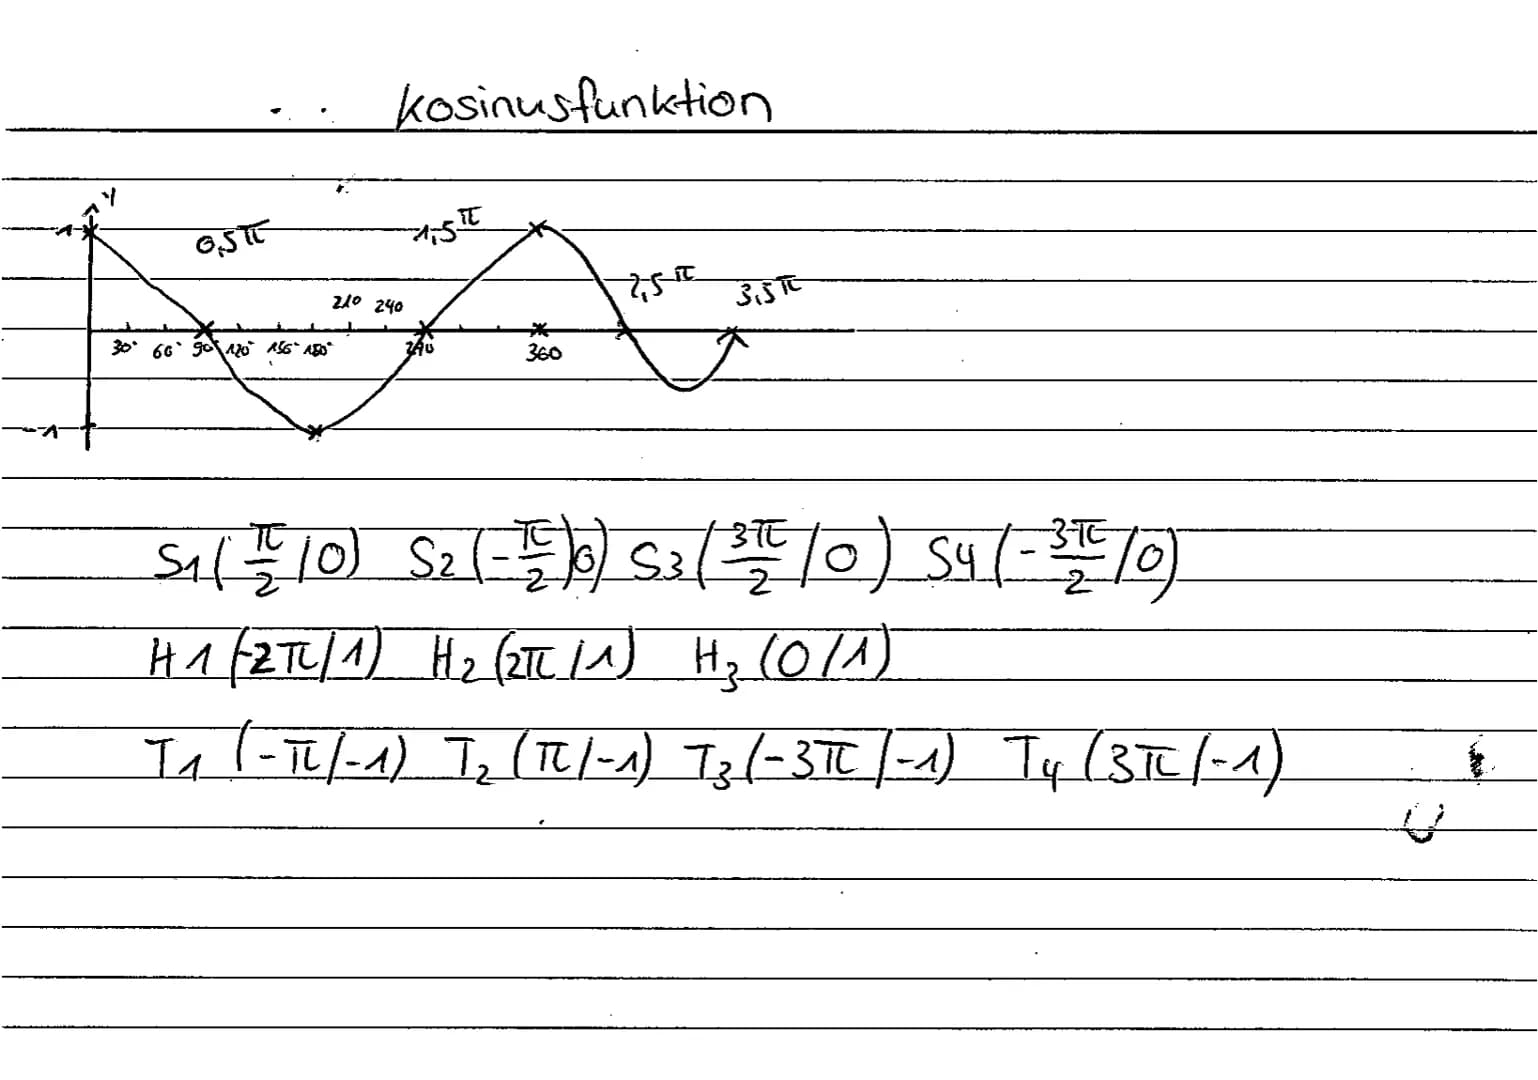 kosinusfunktion
y
1 0,5π 1,5π
2,5π 3,5π
210 240
30° 60° 90° 120° 150° 180° 270 360
-1
S1(π/2 /0) S2(-π/2 /0) S3(3π/2 /0) S4(-3π/2 /0)
H1(-2π/1) H2(2π/1) H3(0/1)
T1(-π/-1) T2(π/-1) T3(-3π/-1) T4(3π/-1)